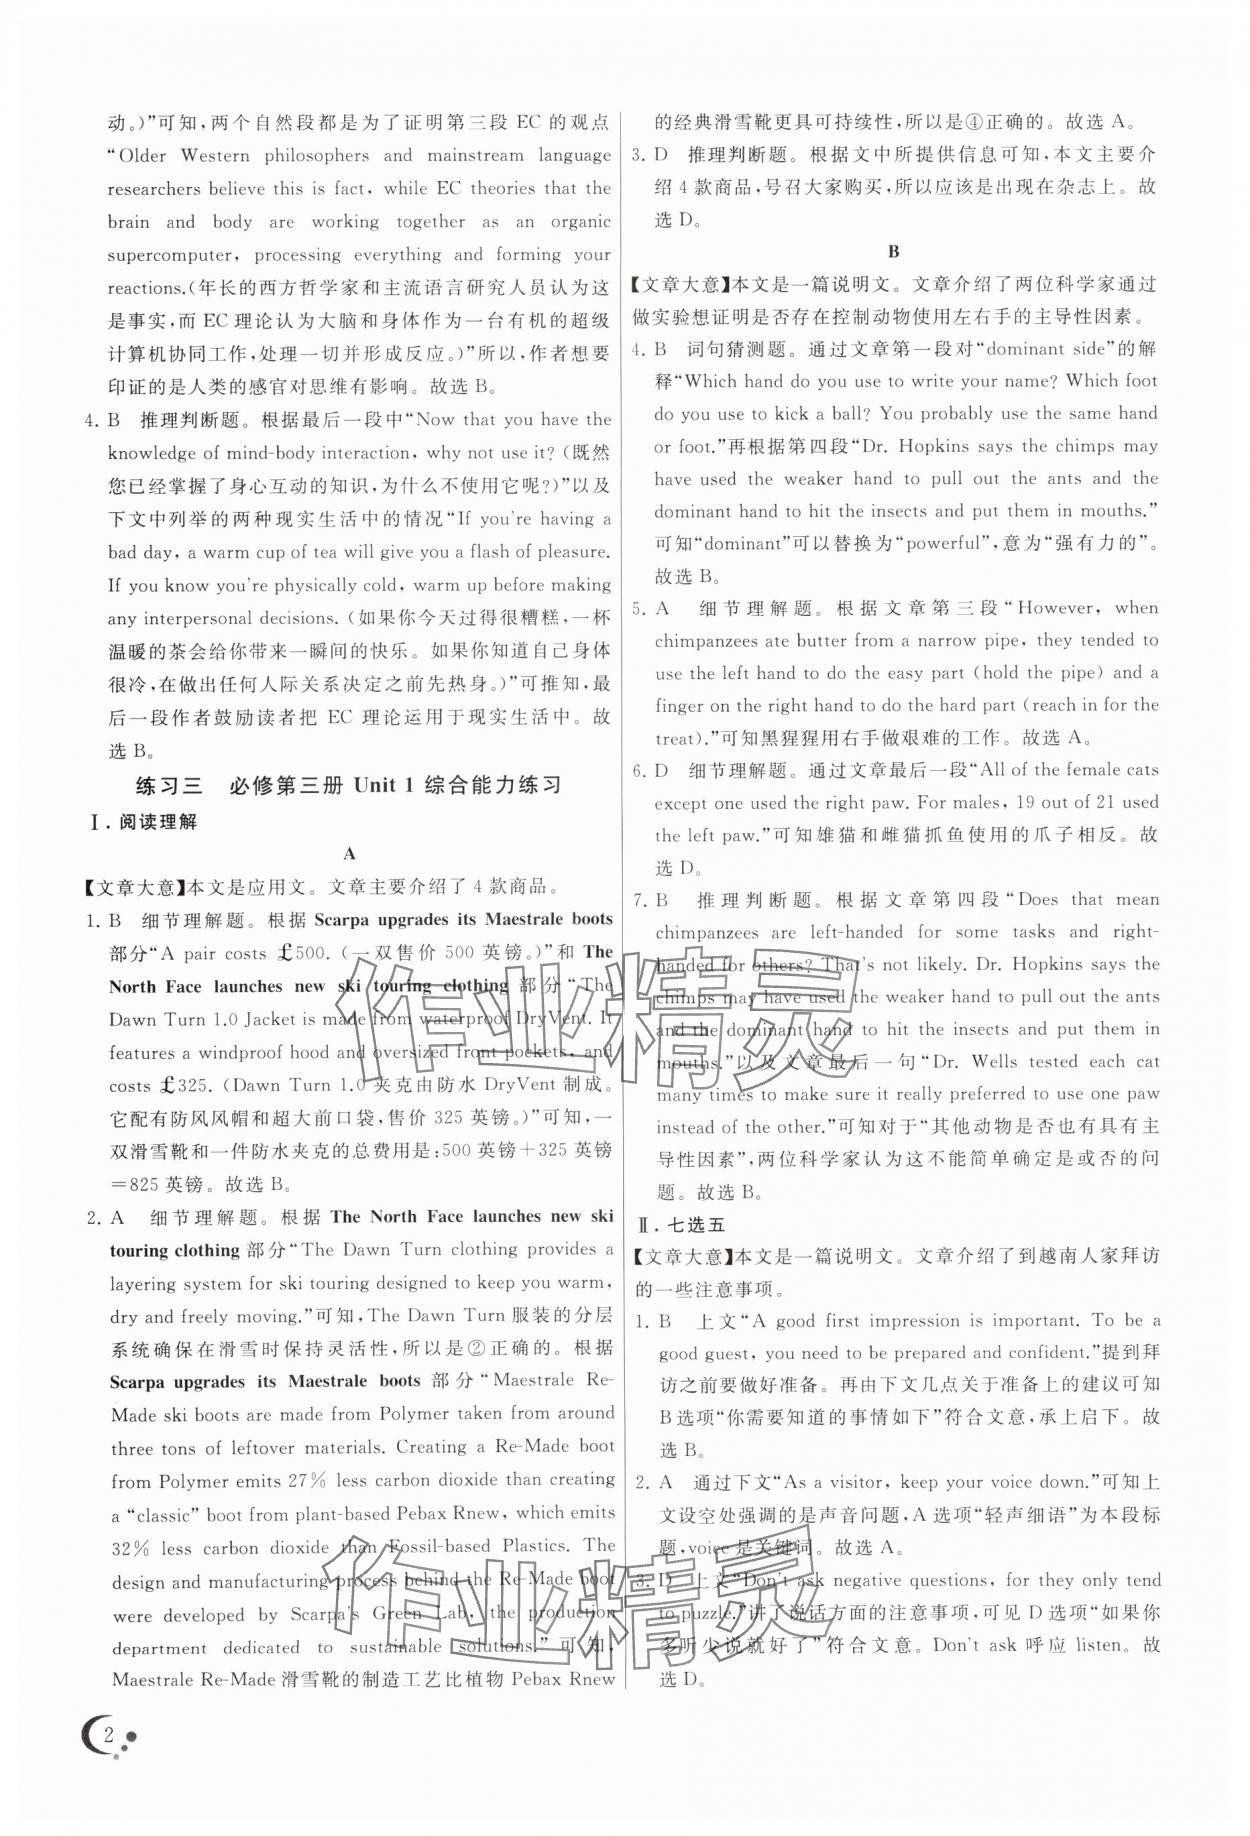 动。)”可知,两个自然段都是为了证明第三段 EC 的观点
“Older Western philosophers and mainstream language
researchers believe this is fact, while EC theories that the
brain and body are working together as an organic
supercomputer, processing everything and forming your
reactions.(年长的西方哲学家和主流语言研究人员认为这
是事实,而 EC 理论认为大脑和身体作为一台有机的超级
计算机协同工作,处理一切并形成反应。)”所以,作者想要
印证的是人类的感官对思维有影响。故选 B。
4. B 推理判断题。根据最后一段中“Now that you have the
knowledge of mind-body interaction, why not use it? (既然
您已经掌握了身心互动的知识,为什么不使用它呢?)”以及
下文中列举的两种现实生活中的情况“If you're having a
bad day, a warm cup of tea will give you a flash of pleasure.
If you know you're physically cold, warm up before making
any interpersonal decisions. (如果你今天过得很糟糕,一杯
温暖的茶会给你带来一瞬间的快乐。如果你知道自己身体
很冷,在做出任何人际关系决定之前先热身。)”可推知,最
后一段作者鼓励读者把 EC 理论运用于现实生活中。故
选 B。
练习三 必修第三册 Unit 1 综合能力练习
Ⅰ. 阅读理解
A
【文章大意】本文是应用文。文章主要介绍了 4 款商品。
1. B 细节理解题。根据 Scarpa upgrades its Maestrale boots
部分“A pair costs £500. (一双售价 500 英镑。)”和 The
North Face launches new ski touring clothing 部分“The
Dawn Turn 1.0 Jacket is made from waterproof DryVent. It
features a windproof hood and oversized front pockets, and
costs £325. (Dawn Turn 1.0 夹克由防水 DryVent 制成。
它配有防风风帽和超大前口袋,售价 325 英镑。)”可知,一
双滑雪靴和一件防水夹克的总费用是:500 英镑+325 英镑
=825 英镑。故选 B。
2. A 细节理解题。根据 The North Face launches new ski
touring clothing 部分“The Dawn Turn clothing provides a
layering system for ski touring designed to keep you warm,
dry and freely moving.”可知,The Dawn Turn 服装的分层
系统确保在滑雪时保持灵活性,所以是②正确的。根据
Scarpa upgrades its Maestrale boots 部分“Maestrale Re-
Made ski boots are made from Polymer taken from around
three tons of leftover materials. Creating a Re-Made boot
from Polymer emits 27% less carbon dioxide than creating
a “classic” boot from plant-based Pebax Rnew, which emits
32% less carbon dioxide than Fossil-based Plastics. The
design and manufacturing process behind the Re-Made boot
were developed by Scarpa's Green Lab, the production
department dedicated to sustainable solutions.” 可知,
Maestrale Re-Made 滑雪靴的制造工艺比植物 Pebax Rnew
的经典滑雪靴更具可持续性,所以是④正确的。故选 A。
3. D 推理判断题。根据文中所提供信息可知,本文主要介
绍 4 款商品,号召大家购买,所以应该是出现在杂志上。故
选 D。
B
【文章大意】本文是一篇说明文。文章介绍了两位科学家通过
做实验想证明是否存在控制动物使用左右手的主导性因素。
4. B 词句猜测题。通过文章第一段对“dominant side”的解
释“Which hand do you use to write your name? Which foot
do you use to kick a ball? You probably use the same hand
or foot.”再根据第四段“Dr. Hopkins says the chimps may
have used the weaker hand to pull out the ants and the
dominant hand to hit the insects and put them in mouths.”
可知“dominant”可以替换为“powerful”,意为“强有力的”。
故选 B。
5. A 细节理解题。根据文章第三段“However, when
chimpanzees ate butter from a narrow pipe, they tended to
use the left hand to do the easy part (hold the pipe) and a
finger on the right hand to do the hard part (reach in for the
treat).”可知黑猩猩用右手做艰难的工作。故选 A。
6. D 细节理解题。通过文章最后一段“All of the female cats
except one used the right paw. For males, 19 out of 21 used
the left paw.”可知雄猫和雌猫抓鱼使用的爪子相反。故
选 D。
7. B 推理判断题。根据文章第四段“Does that mean
chimpanzees are left-handed for some tasks and right-
handed for others? That's not likely. Dr. Hopkins says the
chimps may have used the weaker hand to pull out the ants
and the dominant hand to hit the insects and put them in
mouths.”以及文章最后一句“Dr. Wells tested each cat
many times to make sure it really preferred to use one paw
instead of the other.”可知对于“其他动物是否也有具有主
导性因素”,两位科学家认为这不能简单确定是或否的问
题。故选 B。
Ⅱ. 七选五
【文章大意】本文是一篇说明文。文章介绍了到越南人家拜访
的一些注意事项。
1. B 上文“A good first impression is important. To be a
good guest, you need to be prepared and confident.”提到拜
访之前要做好准备。再由下文几点关于准备上的建议可知
B 选项“你需要知道的事情如下”符合文意,承上启下。故
选 B。
2. A 通过下文“As a visitor, keep your voice down.”可知上
文设空处强调的是声音问题,A 选项“轻声细语”为本段标
题,voice 是关键词。故选 A。
3. D 上文“Don't ask negative questions, for they only tend
to puzzle.”讲了说话方面的注意事项,可见 D 选项“如果你
多听少说就好了”符合文意。Don't ask 呼应 listen。故
选 D。
作业精灵
作业精灵
2